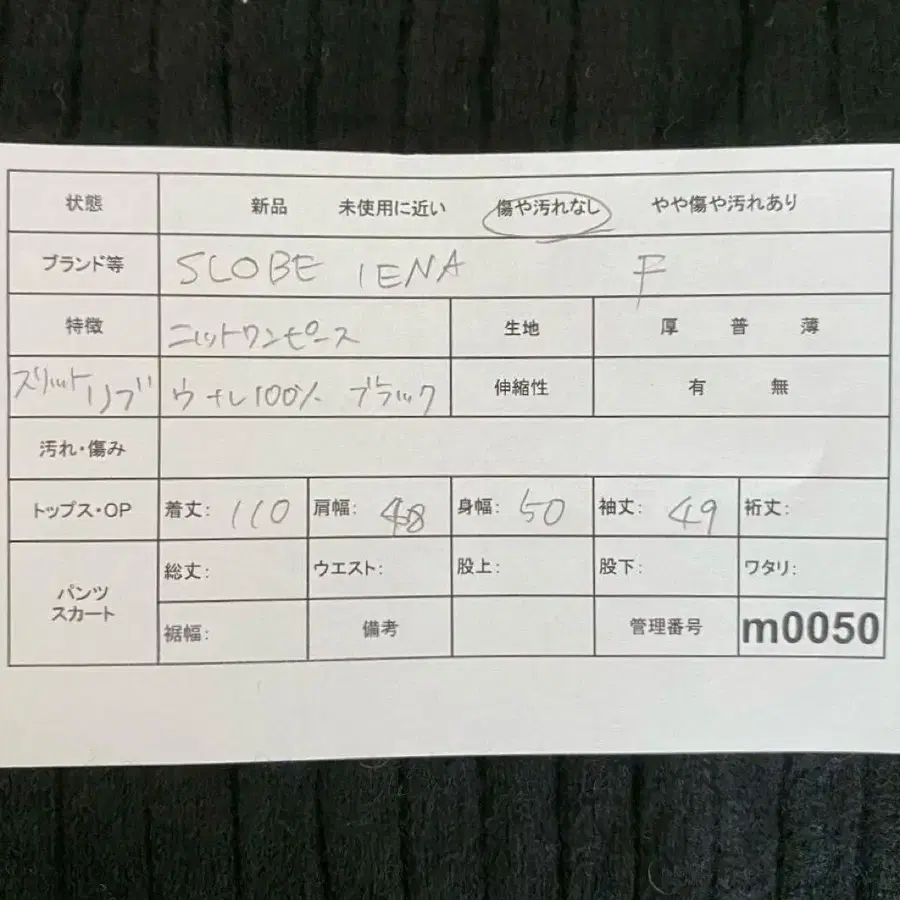 状態 新品 未使用に近い 傷や汚れなし やや傷や汚れあり
ブランド等 SLOBE IENA F
特徴 ニットワンピース 生地 厚 普 薄
スリット リブ ウール100% ブラック 伸縮性 有 無
汚れ・傷み
トップス・OP 着丈: 110 肩幅: 48 身幅: 50 袖丈: 49 裄丈:
パンツ スカート 総丈: ウエスト: 股上: 股下: ワタリ:
裾幅: 備考 管理番号 m0050